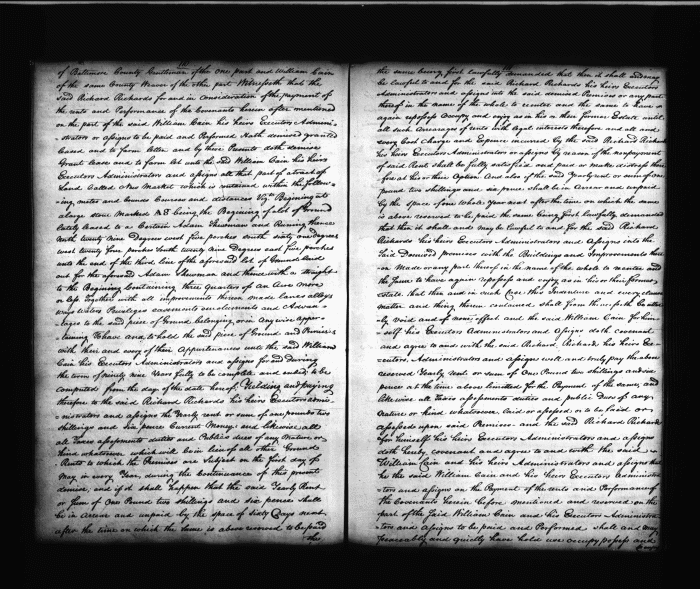 of Baltimore County Gentleman of the one part and William Cain
of the same County Weaver of the other part Witnesseth that the
Said Richard Richards for and in Consideration of the payment of
the rents and Performance of the Covenants herein after mentioned
on the part of the said William Cain his heirs Executors Admini
strators or assigns to be paid and Performed Hath demised granted
Leased and to farm let and by these Presents doth demise
Grant lease and to farm let unto the Sd William Cain his heirs
Executors Administrators and assigns all that part of a tract of
Land Called New Market which is contained within the follow
ing metes and bounds Courses and distances Vizt Begining at
a large stone Marked AS being the Begining of a lot of Ground
lately leased to a Certain Adam Shewman and Runing thence
North twenty nine Degrees west five perches north sixty one Degrees
west twenty four perches South twenty nine Degrees east five perches
unto the end of the third line of the aforesaid lot of Ground laid
out for the aforesaid Adam Shewman and thence with a straight
to the Begining Containing three Quarters of an Acre more
or less Together with all improvements thereon made lanes alleys
ways Waters Priviledges easements emoluments and Advan
tages to the said piece of Ground belonging or in Any wise apper
taining To have and to hold the said piece of Ground and Premises
with their and every of their Appurtenances unto the said William
Cain his Executors Administrators and assigns for and During
the term of ninety nine Years fully to be complete and ended to be
Computed from the day of the date hereof Yielding and paying
therefor to the said Richard Richards his heirs Executors Admi
nistrators and assigns the Yearly rent or sum of one pound two
shillings and six pence Current Money and likewise all
all Taxes assessments duties and Publick dues of any Nature or
kind whatsoever which will be in lieu of all other Ground
Rents to which the Premises are Subject on the first day of
May in every Year during the Continuance of this present
demise, and if it shall happen that the said Yearly Rent
or Sum of One Pound two shillings and six pence shall
be in Arrear and unpaid by the space of Sixty Days next
after the time on which the same is above reserved to be paid
the
the same being first lawfully demanded that then it shall and may
be lawful to and for the said Richard Richards his heirs Executors
Administrators and assigns into the said demised Premises or any part
thereof in the name of the whole to reenter and the same to have
again repossess Occupy and enjoy as in his or their former Estate until
all such Arrearages of rents with legal interests therefor and all and
every Cost Charge and Expence incurred by the said Richard Richards
his heirs Executors Administrators or assigns by reason of the nonpayment
of said Rent shall be fully satisfied and paid or make distress there
for at his or their Option And also if the said Yearly rent or sum of one
pound two shillings and six pence shall be in Arrear and unpaid
by the space of one whole Year next after the time on which the same
is above reserved to be paid the same being first lawfully demanded
that then it shall and may be lawful to and for the said Richard
Richards his heirs Executors Administrators and Assigns into the
Said Demised premises with the Buildings and Improvements there
on Made or any part thereof in the name of the whole to reenter and
the Same to have again repossess and enjoy as in his or their former
estate that then and in such Case this Indenture and every clause
matter and thing therein contained shall from thenceforth be utter
ly Void and of none effect and the said William Cain for him
self his Executors Administrators and Assigns doth covenant
and agree to and with the said Richard Richards his heirs Ex
ecutors Administrators and Assigns well and truly pay the above
reserved Yearly rent or sum of One Pound two shillings and six
pence at the time above limitted for the Payment of the same, and
likewise all Taxes assessments duties and public Dues of any
Nature or kind whatsoever laid or assessed or to be laid or
assessed upon said Premises and the said Richard Richards
for himself his heirs Executors Administrators and assigns
doth hereby covenant and agree to and with the said
William Cain and his heirs Administrators and assigns that
he the said William Cain and his heirs Executors Administra
tors and assigns on the Payment of the rents and Performance of
the Covenants herein before mentioned and reserved on the
part of the Said William Cain and his Executors Administra
tors and assigns to be paid and Performed shall and may
Peaceably and quietly have hold use occupy possess and